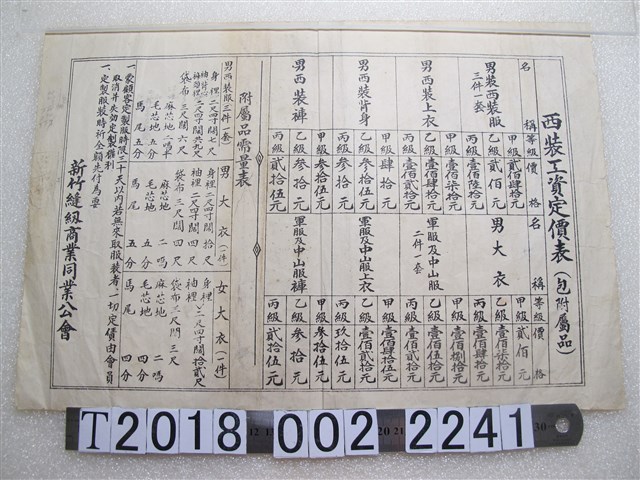 西裝工資定價表（包附屬品）
名稱 等級 價格
男裝西裝服三件一套
甲級 貳佰肆拾元
乙級 貳佰元
丙級 壹佰陸拾元
男西裝上衣
甲級 壹佰柒拾元
乙級 壹佰肆拾元
丙級 壹佰貳拾元
男西裝背身
甲級 肆拾元
乙級 參拾伍元
丙級 參拾元
男西裝褲
甲級 參拾伍元
乙級 參拾元
丙級 貳拾伍元
名稱 等級 價格
男大衣
甲級 貳佰元
乙級 壹佰柒拾元
丙級 壹佰肆拾元
軍服及中山服二件一套
甲級 壹佰捌拾元
乙級 壹佰伍拾元
丙級 壹佰貳拾元
軍服及中山服上衣
甲級 壹佰肆拾伍元
乙級 壹佰貳拾元
丙級 玖拾伍元
軍服及中山服褲
甲級 參拾伍元
乙級 參拾元
丙級 貳拾伍元
附屬品需量表
男西裝服三件（一套）
身裡二尺四寸闊七尺
袖裡二尺四寸闊九尺
袋布三尺闊六尺
麻芯地二嗎
毛芯地五分
馬尾五分
男大衣（一件）
身裡二尺四寸闊拾尺
袖裡二尺四寸闊四尺
袋布三尺闊四尺
麻芯地二嗎
毛芯地五分
馬尾五分
女大衣（一件）
身裡二尺四寸闊拾貳尺
袖裡
袋布三尺闊三尺
麻芯地二嗎
毛芯地四分
馬尾四分
一、蒙顧客定製服時限三十天以內若無來取服裝者、一切定賃由會員
取消并失勿定製權利
一、定製服裝時祈全額先付為要
新竹縫紉商業同業公會
T2018 002 2241